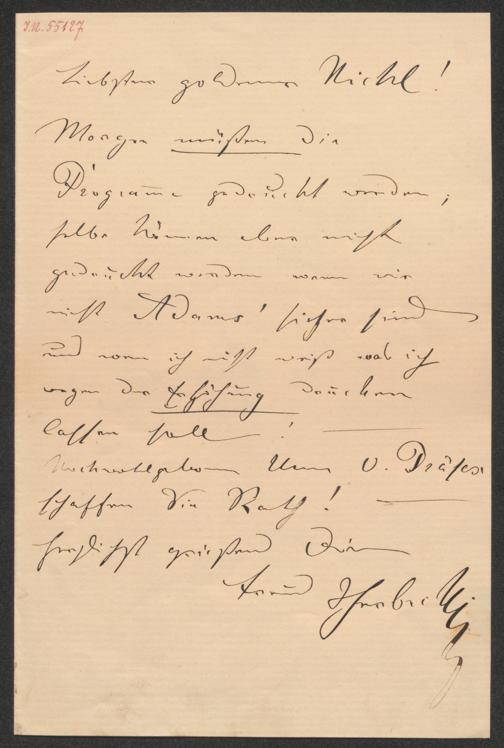 I.N. 55127
Liebster goldener Nickl!
Morgen müßen die
Programme gedruckt werden,
selbe können aber nicht
gedruckt werden wenn wir
nicht Adams' sicher sind
und wenn ich nicht weiß was ich
wegen der Erhöhung drucken
lassen soll!
Hochwolgeboren Herr V. Präses
schaffen Sie Rath!
herzlichst grüßend Ihr